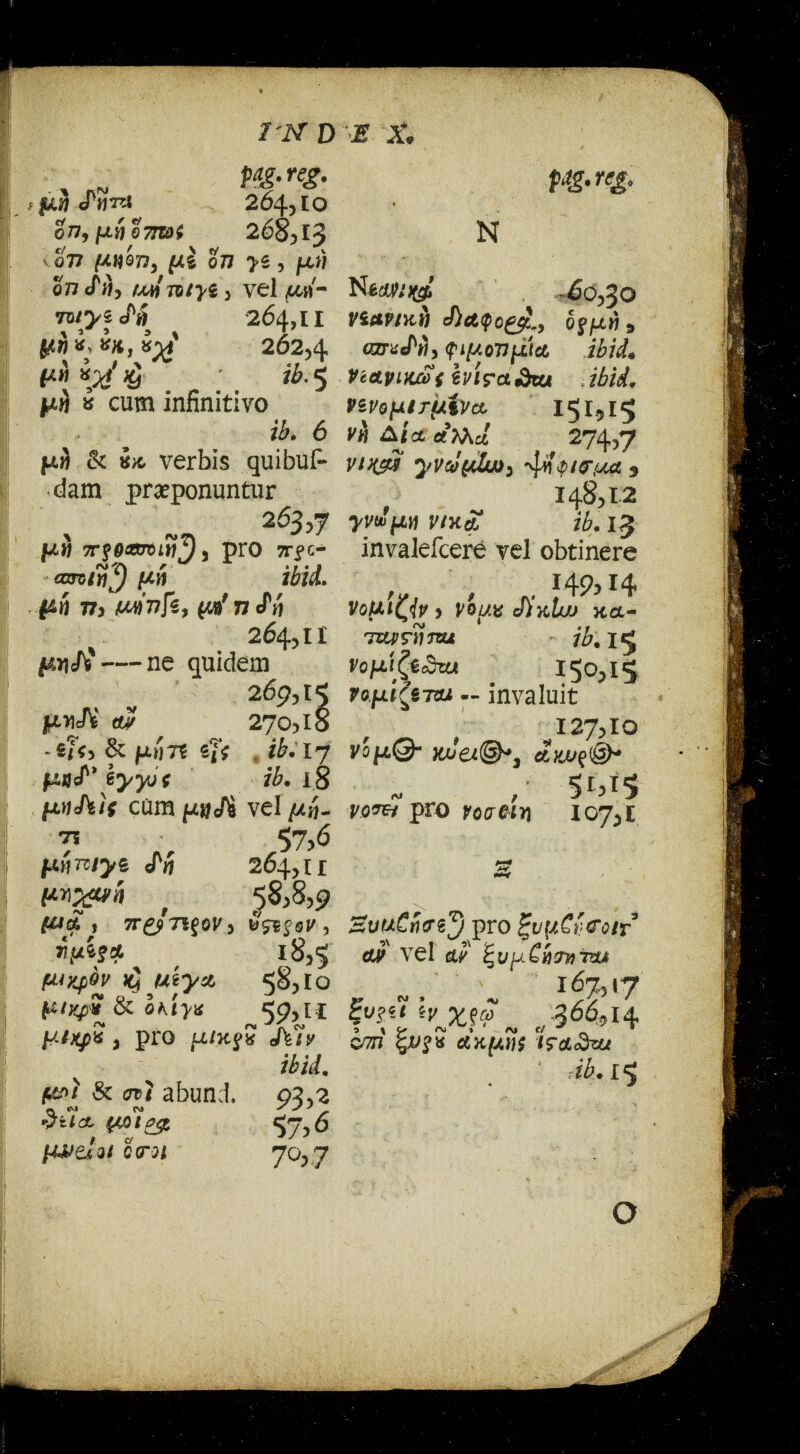 INDEX.
pag. reg.
μὴ δῆτα 264,10
ὅτι, μὴ ὅπως 268,13
ὅτι μὴ ὅτι, μὲ ὅτι γε, μὴ
ὅτι δὴ, μή τοιγε, vel μή-
τοιγε δὴ 264,11
μὴ οὐ, οὐκ, οὐχ 262,4
μὴ οὐχὶ καὶ ib. 5
μὴ οὐ cum infinitivo
ib. 6
μὴ & οὐκ verbis quibuſ-
dam præponuntur
263,7
pro
μὴ ibid.
μή τι, μήτιγε, μή τι δὴ
264,11
μηδὲ —— ne quidem
269,15
μηδὲ ἂν 270,18
- εἷς, & μήτε εἷς ib. 17
μηδ' ἐγγὺς ib. 18
μηδεὶς cum μηδὲ vel μή-
τι 57,6
μήτοιγε δὴ 264,11
μηχανὴ 58,8,9
μιᾷ, πρότερον, ὕστερον,
ἡμέρᾳ 18,5
μικρὸν καὶ μέγα 58,10
μικροῦ & ὀλίγου 59,11
μικροῦ, pro μικροῦ δεῖν
ibid.
μοὶ & σοὶ abund. 93,2
θεία μοῖρα 57,6
μυρίοι ὅσοι 70,7
pag. reg.
N
Νεανικὴ 60,30
νεανικὴ διαφορὰ, ὁρμὴ,
σπουδὴ, φιλοτιμία ibid.
νεανικῶς ἐνίστασθαι ibid.
151,15
νὴ Δία ἀλλὰ 274,7
νικᾷν γνώμην, ψήφισμα,
148,12
γνώμη νικᾷ ib. 13
invaleſcere vel obtinere
149,14
νομίζειν, νόμου δίκην κα-
ταστῆναι ib. 15
νομίζεσθαι 150,15
νομίζεται -- invaluit
127,10
νόμος κύριος, ἄκυρος
51,15
νοσεῖ pro νοσείη 107,1
Ξ
Ξυμβήσεται pro ξυμβήσοιτ'
ἂν vel ἂν ξυμβήσηται
167,17
ξυρεῖ ἐν χρῷ 366,14
ἐπὶ ξυροῦ ἀκμῆς ἵστασθαι
ib. 15
O